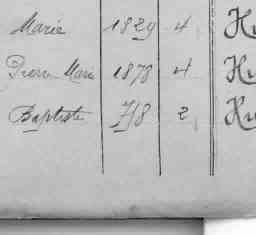 Marie 1829 4
Pierre Marie 1878 4
Baptiste 718 2